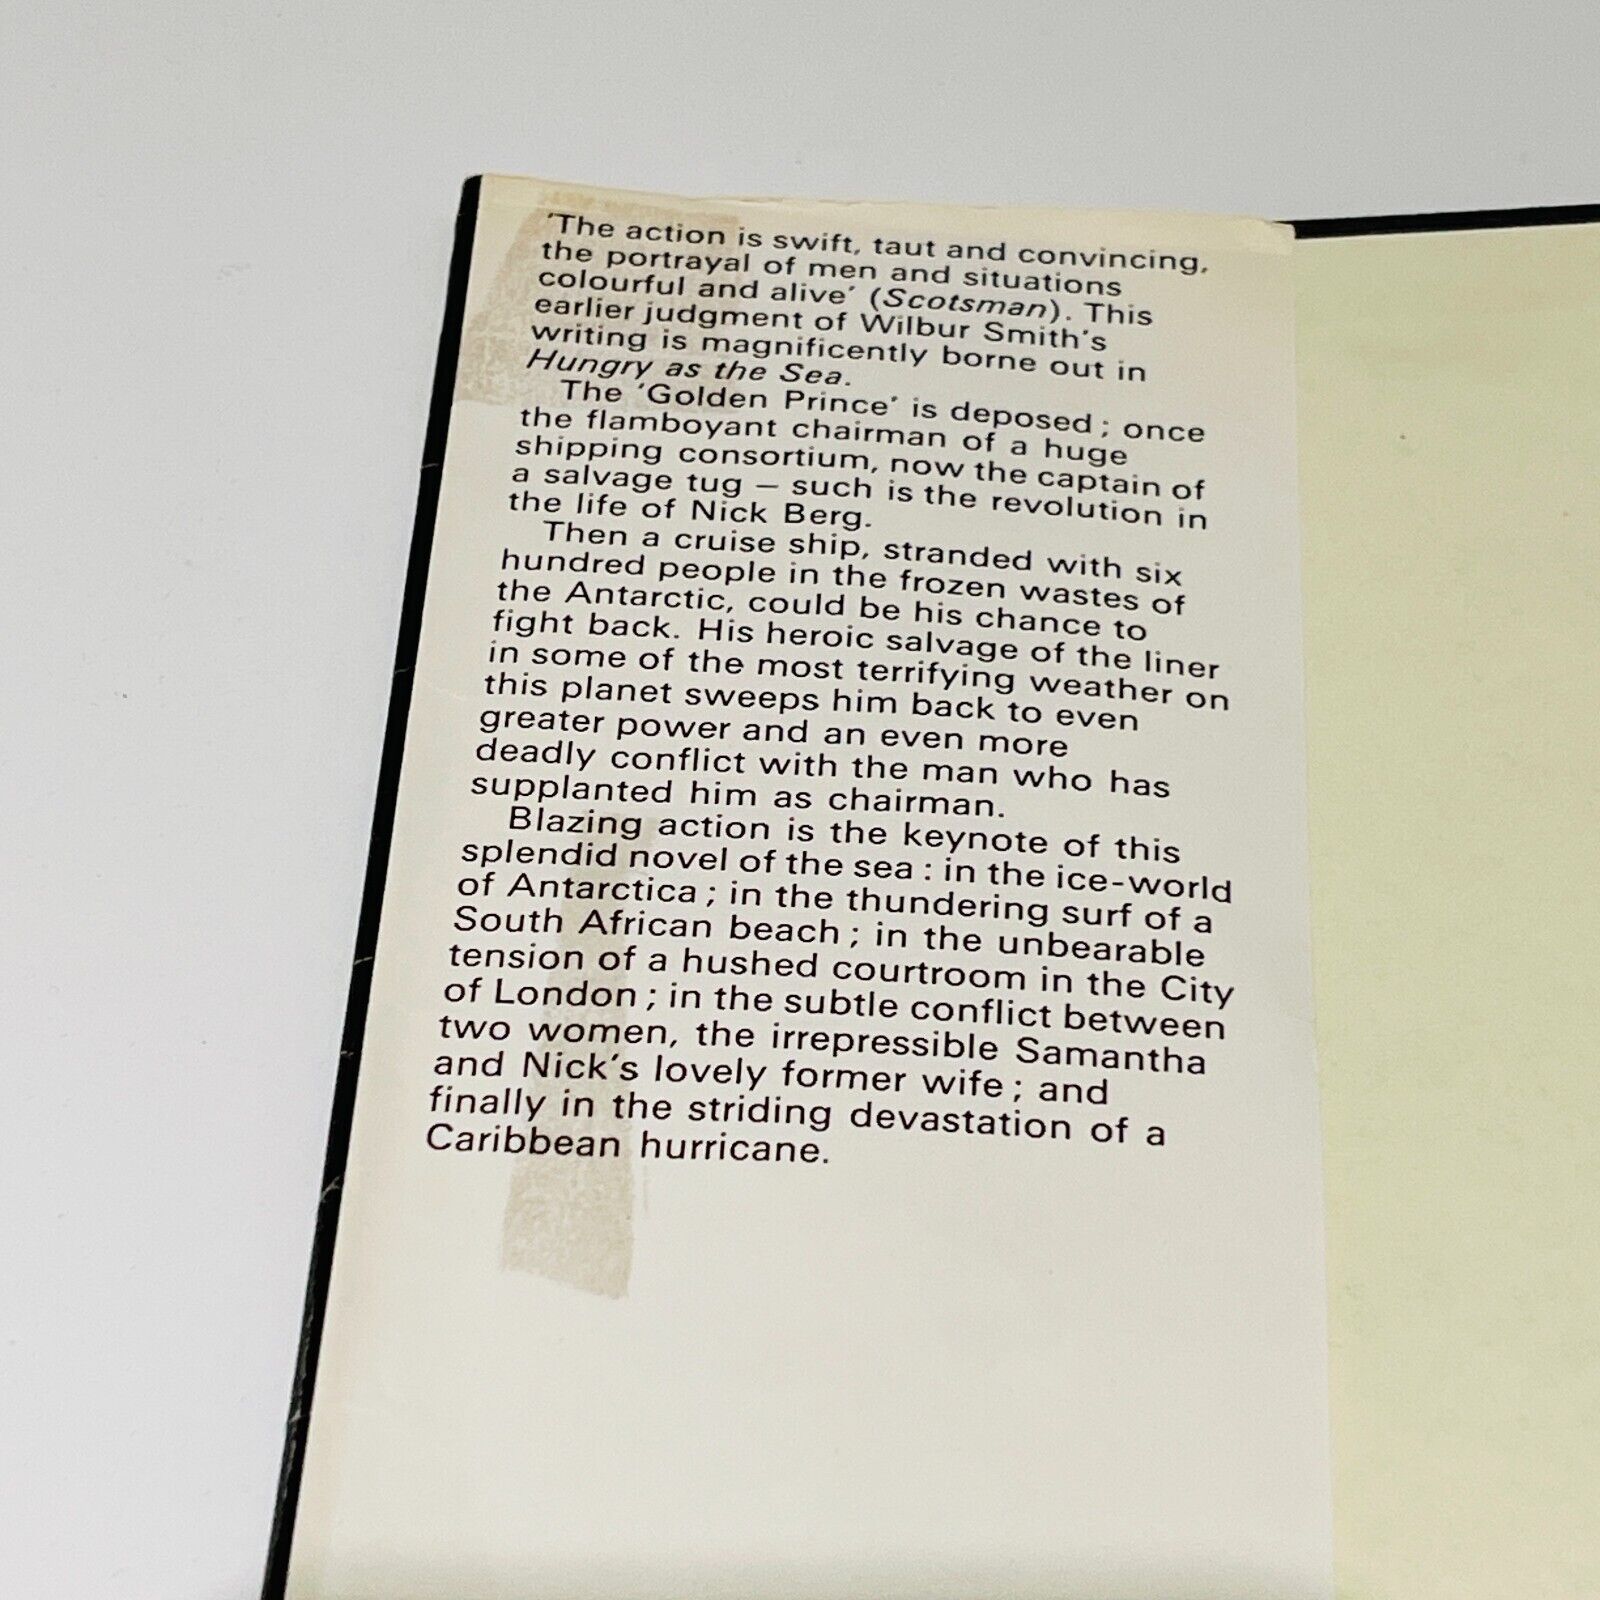 'The action is swift, taut and convincing,
the portrayal of men and situations
colourful and alive' (Scotsman). This
earlier judgment of Wilbur Smith's
writing is magnificently borne out in
Hungry as the Sea.
The 'Golden Prince' is deposed; once
the flamboyant chairman of a huge
shipping consortium, now the captain of
a salvage tug – such is the revolution in
the life of Nick Berg.
Then a cruise ship, stranded with six
hundred people in the frozen wastes of
the Antarctic, could be his chance to
fight back. His heroic salvage of the liner
in some of the most terrifying weather on
this planet sweeps him back to even
greater power and an even more
deadly conflict with the man who has
supplanted him as chairman.
Blazing action is the keynote of this
splendid novel of the sea: in the ice-world
of Antarctica; in the thundering surf of a
South African beach; in the unbearable
tension of a hushed courtroom in the City
of London; in the subtle conflict between
two women, the irrepressible Samantha
and Nick's lovely former wife; and
finally in the striding devastation of a
Caribbean hurricane.